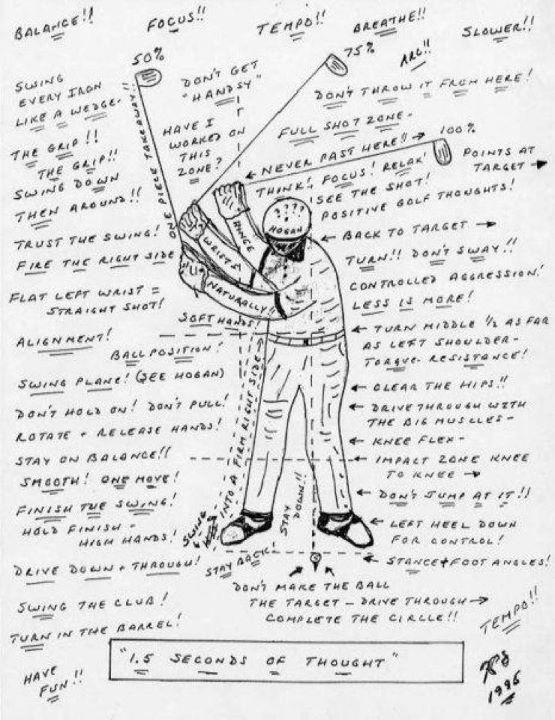 BALANCE!!
FOCUS!!
TEMPO!!
BREATHE!!
SLOWER!!
50%
75%
ARC!!
SWING
EVERY IRON
LIKE A WEDGE-
DON'T GET
"HANDSY"
DON'T THROW IT FROM HERE!
THE GRIP!!
THE GRIP!!
HAVE I
WORKED ON
THIS
ZONE?
FULL SHOT ZONE-
100%
ONE PIECE TAKEAWAY!!
NEVER PAST HERE!!
POINTS AT
TARGET
SWING DOWN
THEN AROUND!!
THINK! FOCUS! RELAX!
SEE THE SHOT!
POSITIVE GOLF THOUGHTS!
? ? ?
HOGAN
TRUST THE SWING!
FIRE THE RIGHT SIDE
HINGE
WRISTS
NATURALLY!!
BACK TO TARGET
TURN!! DON'T SWAY!!
CONTROLLED AGGRESSION!
LESS IS MORE!
FLAT LEFT WRIST =
STRAIGHT SHOT!
SOFT HANDS!
ALIGNMENT!
BALL POSITION!
TURN MIDDLE 1/2 AS FAR
AS LEFT SHOULDER-
TORQUE- RESISTANCE!
SWING PLANE! (SEE HOGAN)
CLEAR THE HIPS!!
DON'T HOLD ON! DON'T PULL!
ROTATE + RELEASE HANDS!
DRIVE THROUGH WITH
THE BIG MUSCLES-
KNEE FLEX-
STAY ON BALANCE!!
SMOOTH! ONE MOVE!
IMPACT ZONE KNEE
TO KNEE
FINISH THE SWING!
HOLD FINISH-
HIGH HANDS!
SWING
INTO A FIRM RIGHT SIDE
STAY
DOWN!!
DON'T JUMP AT IT!!
LEFT HEEL DOWN
FOR CONTROL!
DRIVE DOWN + THROUGH!
STAY BACK
STANCE + FOOT ANGLES!
DON'T MAKE THE BALL
THE TARGET - DRIVE THROUGH
COMPLETE THE CIRCLE!!
SWING THE CLUB!
TURN IN THE BARREL!
TEMPO!!
HAVE
FUN!!
"1.5 SECONDS OF THOUGHT"